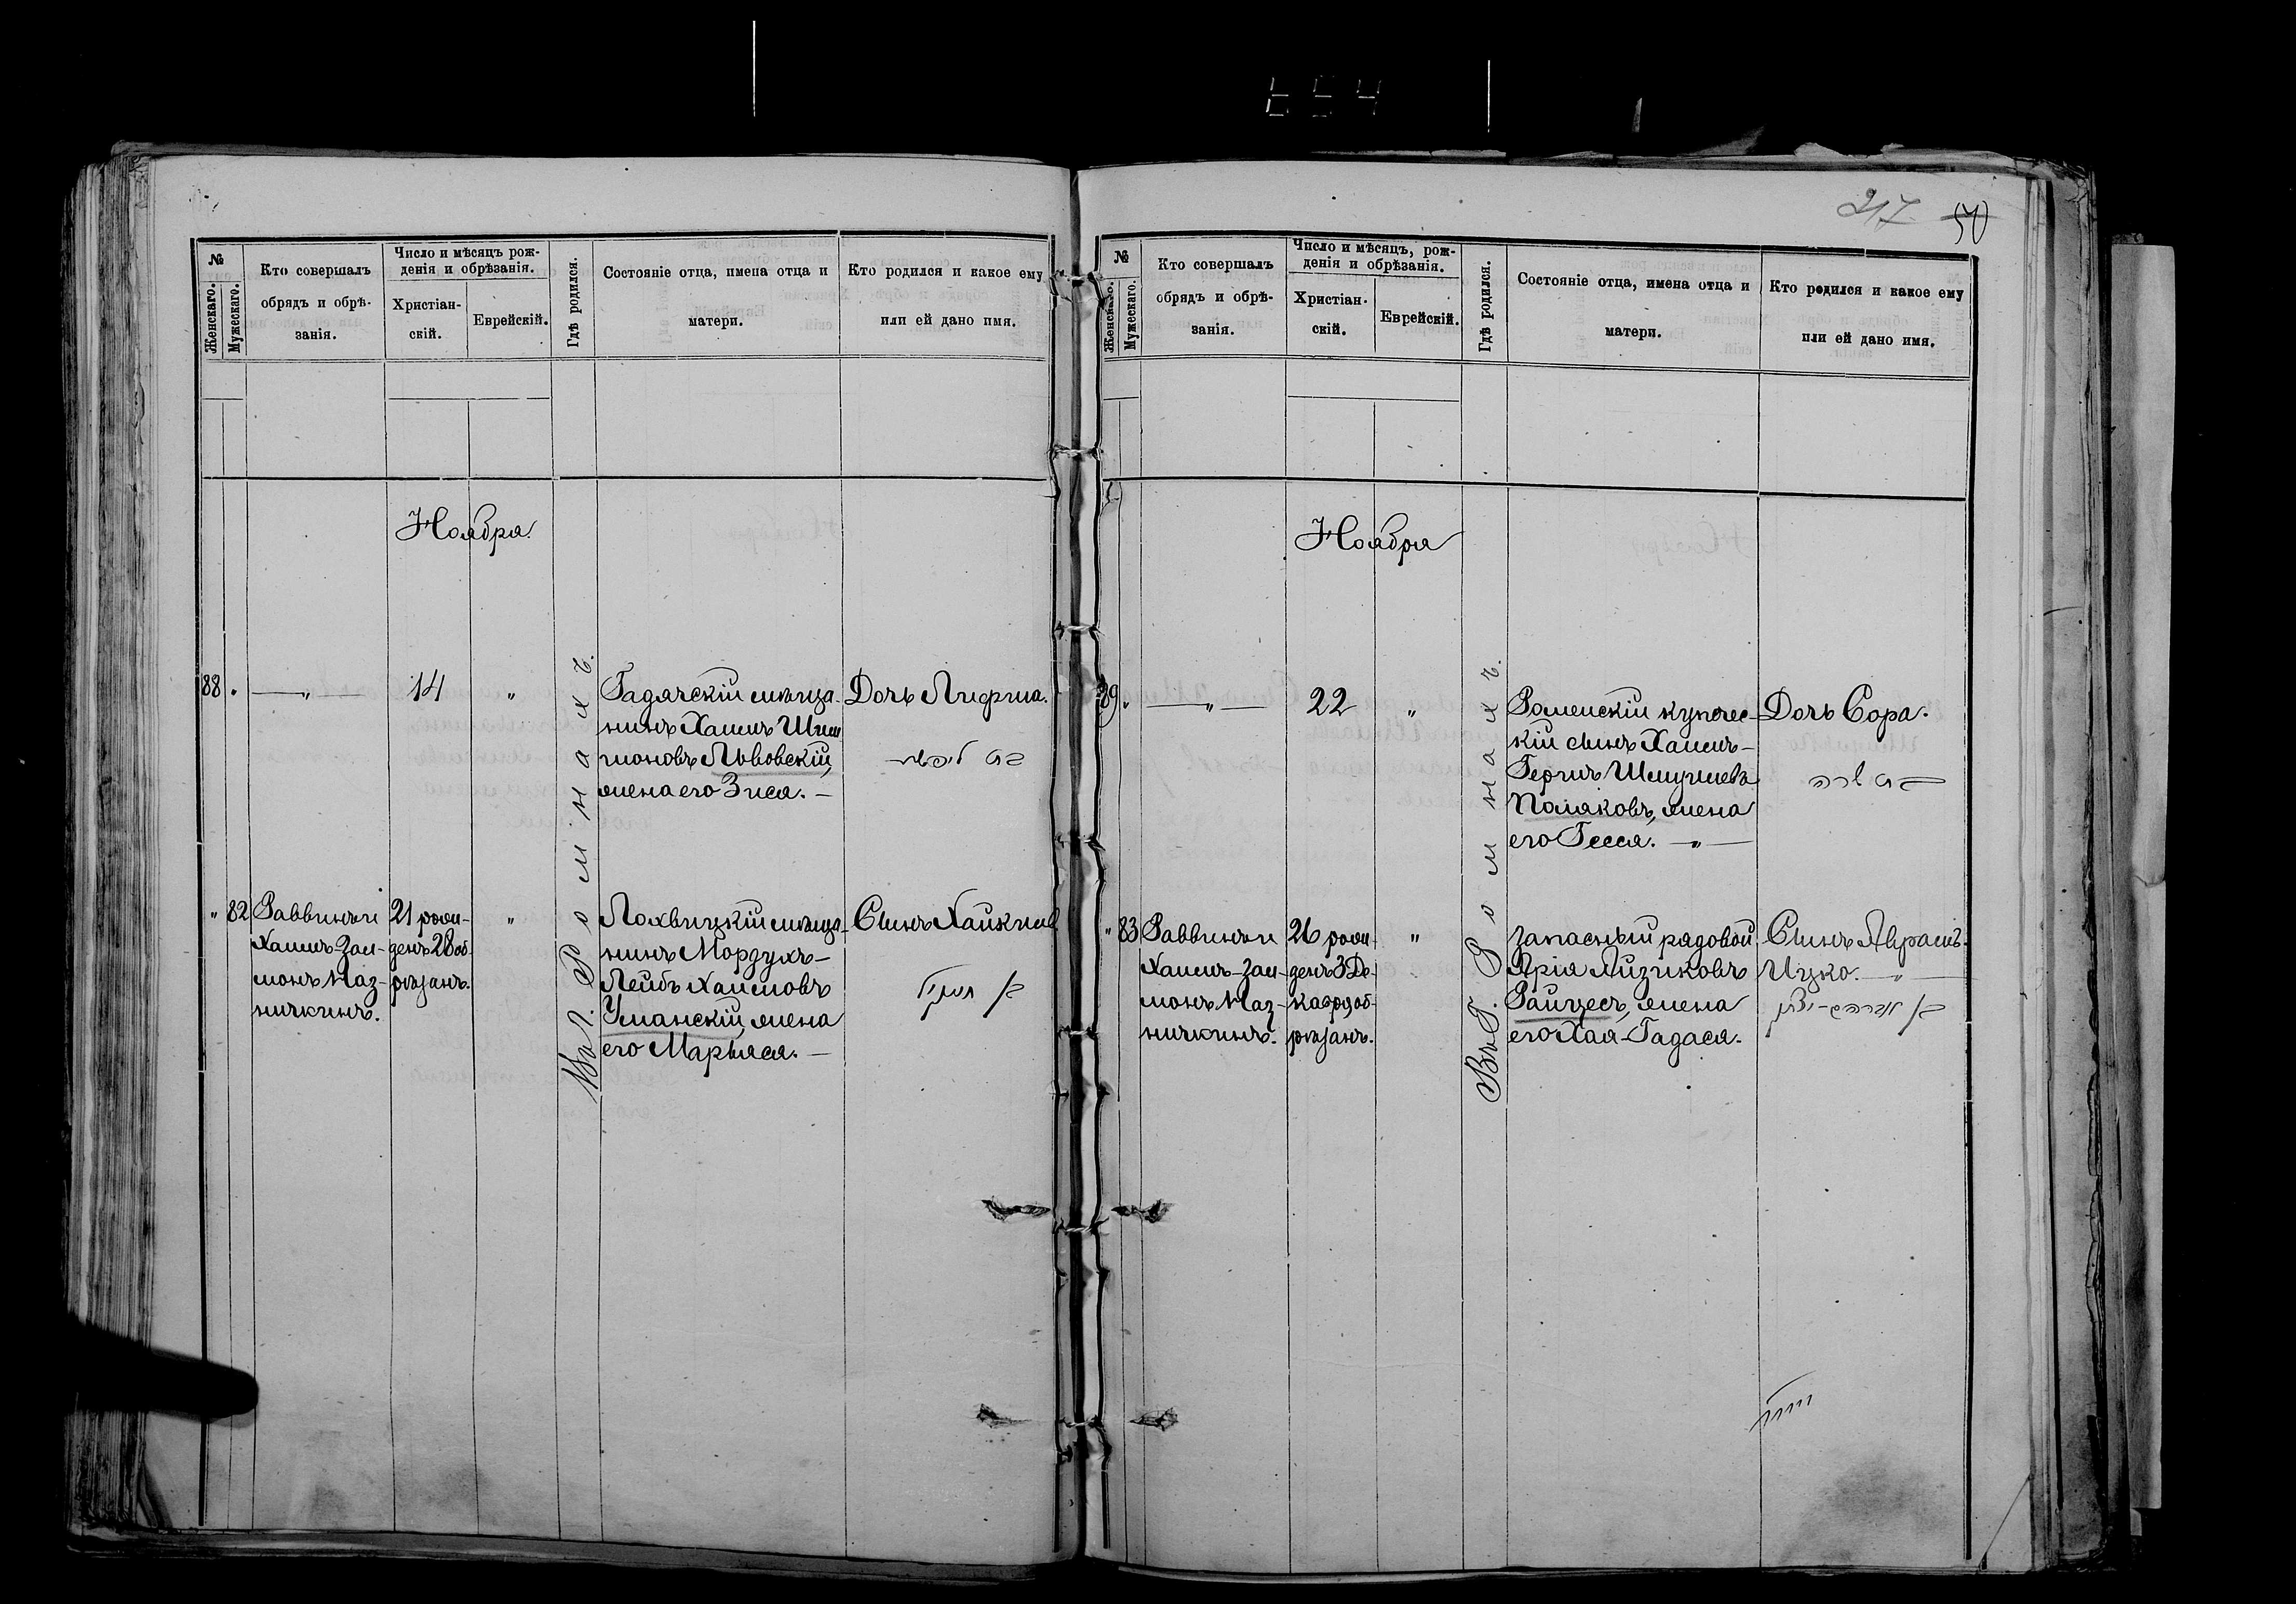 217 50
№
Женскаго.
Мужескаго.
Кто совершалъ
обрядъ и обрѣ-
занія.
Число и мѣсяцъ рож-
денія и обрѣзанія.
Христіан-
скій.
Еврейскій.
Гдѣ родился.
Состояніе отца, имена отца и
матери.
Кто родился и какое ему
или ей дано имя.
Ноября
88 " — " — 14 "
Гадячскій мѣща-
нинъ Хаимъ Шим
моновъ Львовскій,
жена его Зися. —
Дочь Лифша.
בת ליפשה
" 82
Раввинъ и
Хаимъ-Зал-
монъ Маз-
ничкинъ.
21 рож-
денъ 28 об-
рѣзанъ.
"
Лохвицкій мѣща-
нинъ Мордухъ-
Лейбъ Хаимовъ
Уманскій, жена
его Марьяся. —
Сынъ Хайкель
בן חייקיל
Въ г. Ромнахъ.
№
Женскаго.
Мужескаго.
Кто совершалъ
обрядъ и обрѣ-
занія.
Число и мѣсяцъ, рож-
денія и обрѣзанія.
Христіан-
скій.
Еврейскій.
Гдѣ родился.
Состояніе отца, имена отца и
матери.
Кто родился и какое ему
или ей дано имя.
Ноября
89 " — " — 22 "
Роменскій купечес-
кій сынъ Хаимъ-
Герцъ Шмулевъ
Поляковъ, жена
его Гесся. — " —
Дочь Сора.
בת שרה
" 83
Раввинъ и
Хаимъ-Зал-
монъ Маз-
ничкинъ.
26 рож-
денъ 3 Де-
кабря об-
рѣзанъ.
"
Запасный рядовой
Арія Айзиковъ
Райцесъ, жена
его Хая-Гадася.
Сынъ Абрамъ-
Ицко. — " —
בן אברהם-יצחק
Въ Г. Ромнахъ.